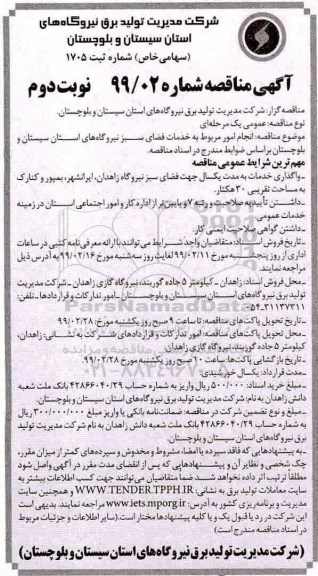 شرکت مدیریت تولید برق نیروگاه‌های
استان سیستان و بلوچستان
(سهامی خاص) شماره ثبت ۱۷۰۵
آگهی مناقصه شماره ۹۹/۰۲ نوبت دوم
مناقصه گزار: شرکت مدیریت تولید برق نیروگاه های استان سیستان و بلوچستان.
نوع مناقصه: عمومی یک مرحله‌ای
موضوع مناقصه: انجام امور مربوط به خدمات فضای سبز نیروگاه‌های استان سیستان و
بلوچستان براساس ضوابط مندرج در اسناد مناقصه.
مهم‌ترین شرایط عمومی مناقصه
-واگذاری خدمات به مدت یکسال جهت فضای سبز نیروگاه زاهدان، ایرانشهر، بمپور و کنارک
به مساحت تقریبی ۳۰ هکتار.
-داشتن تأییدیه صلاحیت و رتبه ۷ و پایین‌تر از اداره کار و امور اجتماعی استان در زمینه
خدمات عمومی.
-داشتن گواهی صلاحیت ایمنی کار.
-تاریخ فروش اسناد: متقاضیان واجد شرایط می‌توانند با ارائه معرفی‌نامه کتبی در ساعات
اداری از روز پنجشنبه مورخ ۹۹/۰۲/۱۱ لغایت روز سه‌شنبه مورخ ۹۹/۰۲/۱۶ به آدرس ذیل
مراجعه نمایند.
-محل فروش اسناد: زاهدان - کیلومتر ۵ جاده گوربند، نیروگاه گازی زاهدان - شرکت مدیریت
تولید برق نیروگاه‌های استان سیستان و بلوچستان - امور تدارکات و قراردادها - تلفن:
۳۱۱۳۷۳۱۱-۰۵۴
-تاریخ تحویل پاکت‌های مناقصه: تا ساعت ۹ صبح روز یکشنبه مورخ: ۹۹/۰۲/۲۸
-محل تحویل پاکت‌های مناقصه: امور تدارکات و قراردادهای شرکت به نشانی: زاهدان،
کیلومتر ۵ جاده گوربند، نیروگاه گازی زاهدان
-تاریخ بازگشایی پاکت‌ها: ساعت ۱۰ صبح روز یکشنبه مورخ ۹۹/۰۲/۲۸
-مدت قرارداد: یکسال خورشیدی.
-مبلغ خرید اسناد: ۵۰۰/۰۰۰ ریال واریز به شماره حساب ۴۲۸۶۶۰۴۰/۲۹ بانک ملت شعبه
دانش زاهدان به نام: شرکت مدیریت تولید برق نیروگاه‌های استان سیستان و بلوچستان
-مبلغ و نوع تضمین شرکت در مناقصه: ضمانت‌نامه بانکی یا واریز مبلغ ۳۰۰/۰۰۰/۰۰۰ ریال
به شماره حساب ۴۲۸۶۶۰۴۰/۲۹ بانک ملت شعبه دانش زاهدان به نام شرکت مدیریت تولید
برق نیروگاه‌های استان سیستان و بلوچستان.
-به پیشنهادهایی که فاقد سپرده یا امضاء، مشروط و مخدوش و سپرده‌های کمتر از میزان مقرر،
چک شخصی و نظایر آن و پیشنهادهایی که پس از انقضای مدت مقرر در آگهی واصل شود
مطلقاً ترتیب اثر داده نخواهد شد. ضمناً متقاضیان می‌توانند جهت کسب اطلاعات بیشتر به
سایت معاملات تولید برق به نشانی: WWW.TENDER.TPPH.IR و همچنین سایت
مدیریت و برنامه‌ریزی کشور به آدرس: www.iets.mporg.ir مراجعه نمایند. بدیهی است
این شرکت در رد یا قبول یک و یا کلیه پیشنهادها مختار است. (سایر اطلاعات و جزئیات مربوط
در اسناد مناقصه مندرج است)
(شرکت مدیریت تولید برق نیروگاه‌های استان سیستان و بلوچستان)